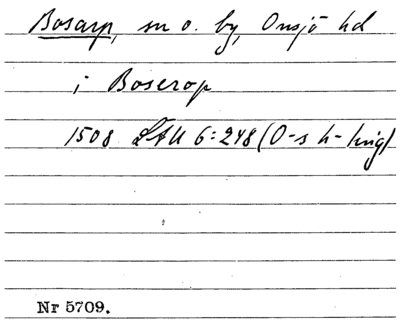 Bosarp, sn o. by, Onsjö hd
i Boserop
1508 LAU 6:248 (O-s h-ting)
Nr 5709.